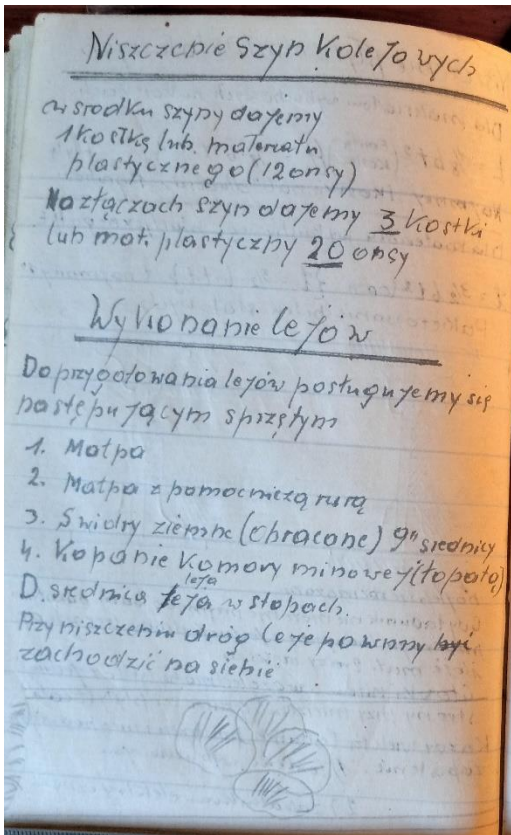 Niszczenie Szyn Kolejowych
w srodku szyny dajemy
1 Kostkę lub. materiału
plastycznego (12 onsy)
Na złączach szyn dajemy 3 Kostki
lub mat. plastyczny 20 onsy
Wykonanie lejów
Do przygotowania lejów posługujemy się
następującym sprzętym
1. Małpa
2. Małpa z pomocniczą rurą
3. Swidry ziemne (obracane) 9" srednicy
4. Kopanie Komory minowej (łopatą)
D. srednica leja w stopach.
Przy niszczeniu dróg leje powinny być
zachodzić na siebie